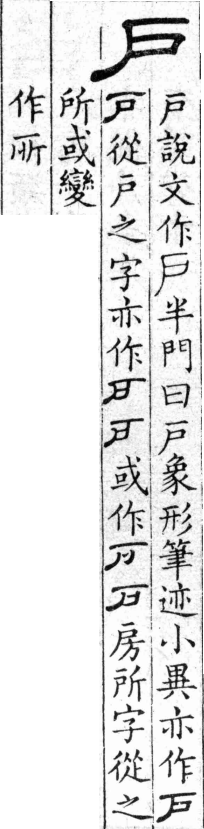 戶
戶說文作戶半門曰戶象形筆迹小異亦作戸
戸從戶之字亦作或作房所字從之
所或變
作所